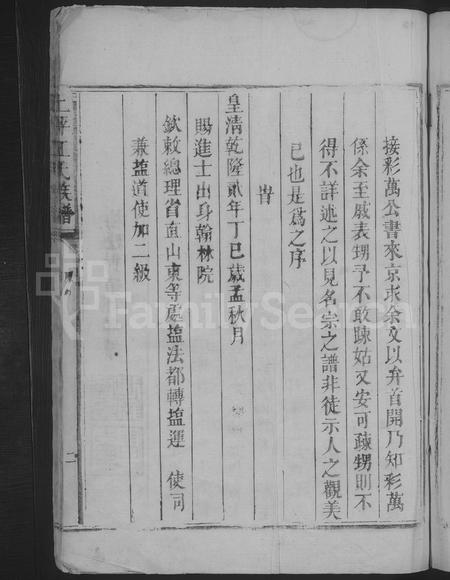 接彩萬公書來京求余文以弁首開乃知彩萬
係余至戚表甥予不敢踈姑又安可踈甥則不
得不詳述之以見名宗之譜非徒示人之觀美
已也是爲之序
旹
皇清乾隆貳年丁巳歲孟秋月
賜進士出身翰林院
欽敕總理省直山東等處塩法都轉塩運 使司
兼塩道使加二級
江氏族譜
二
FamilySearch